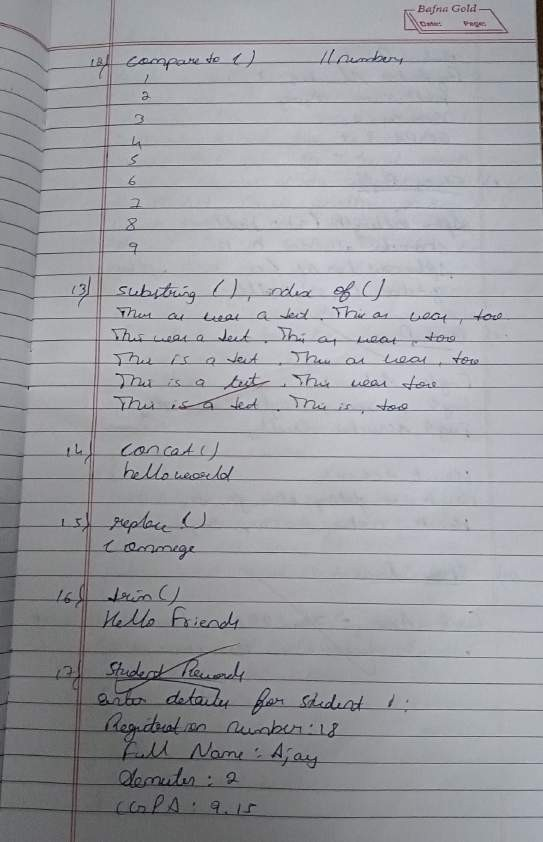 Bafna Gold
Date: Page:
12) compare to () // numbers
1
2
3
4
5
6
7
8
9
13) substring (), index of ()
This as wear a test. This as wear, too
This wear a test. This as wear, too
This is a test. This as wear, too
This is a test. This wear too
This is a test. This is, too
14) concat ()
helloworld
15) replace ()
16) trim ()
Hello Friends
17) Student Records
enter details for student 1:
Registration number: 18
Full Name: Ajay
Semester: 2
CGPA: 9.15